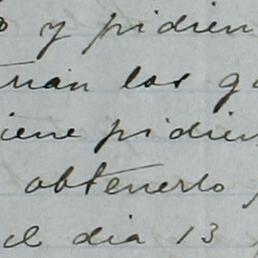 y pidien
los
iene pidien
obtenerlo
el dia 13